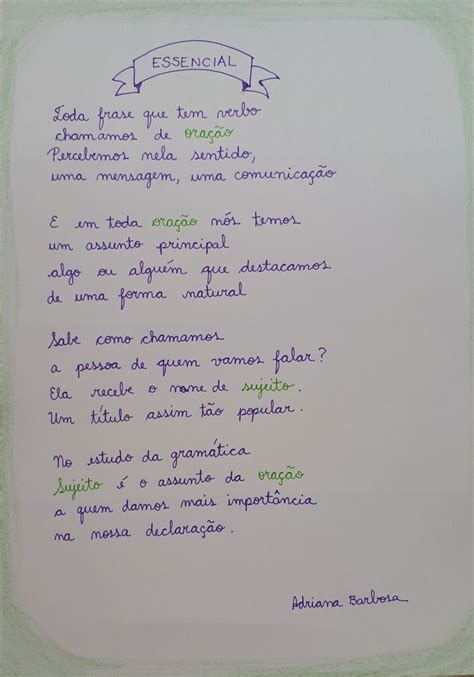 ESSENCIAL
Toda frase que tem verbo
chamamos de oração
Percebemos nela sentido,
uma mensagem, uma comunicação
E em toda oração nós temos
um assunto principal
algo ou alguém que destacamos
de uma forma natural
Sabe como chamamos
a pessoa de quem vamos falar?
Ela recebe o nome de sujeito.
Um título assim tão popular.
No estudo da gramática
Sujeito é o assunto da oração
a quem damos mais importância
na nossa declaração.
Adriana Barbosa